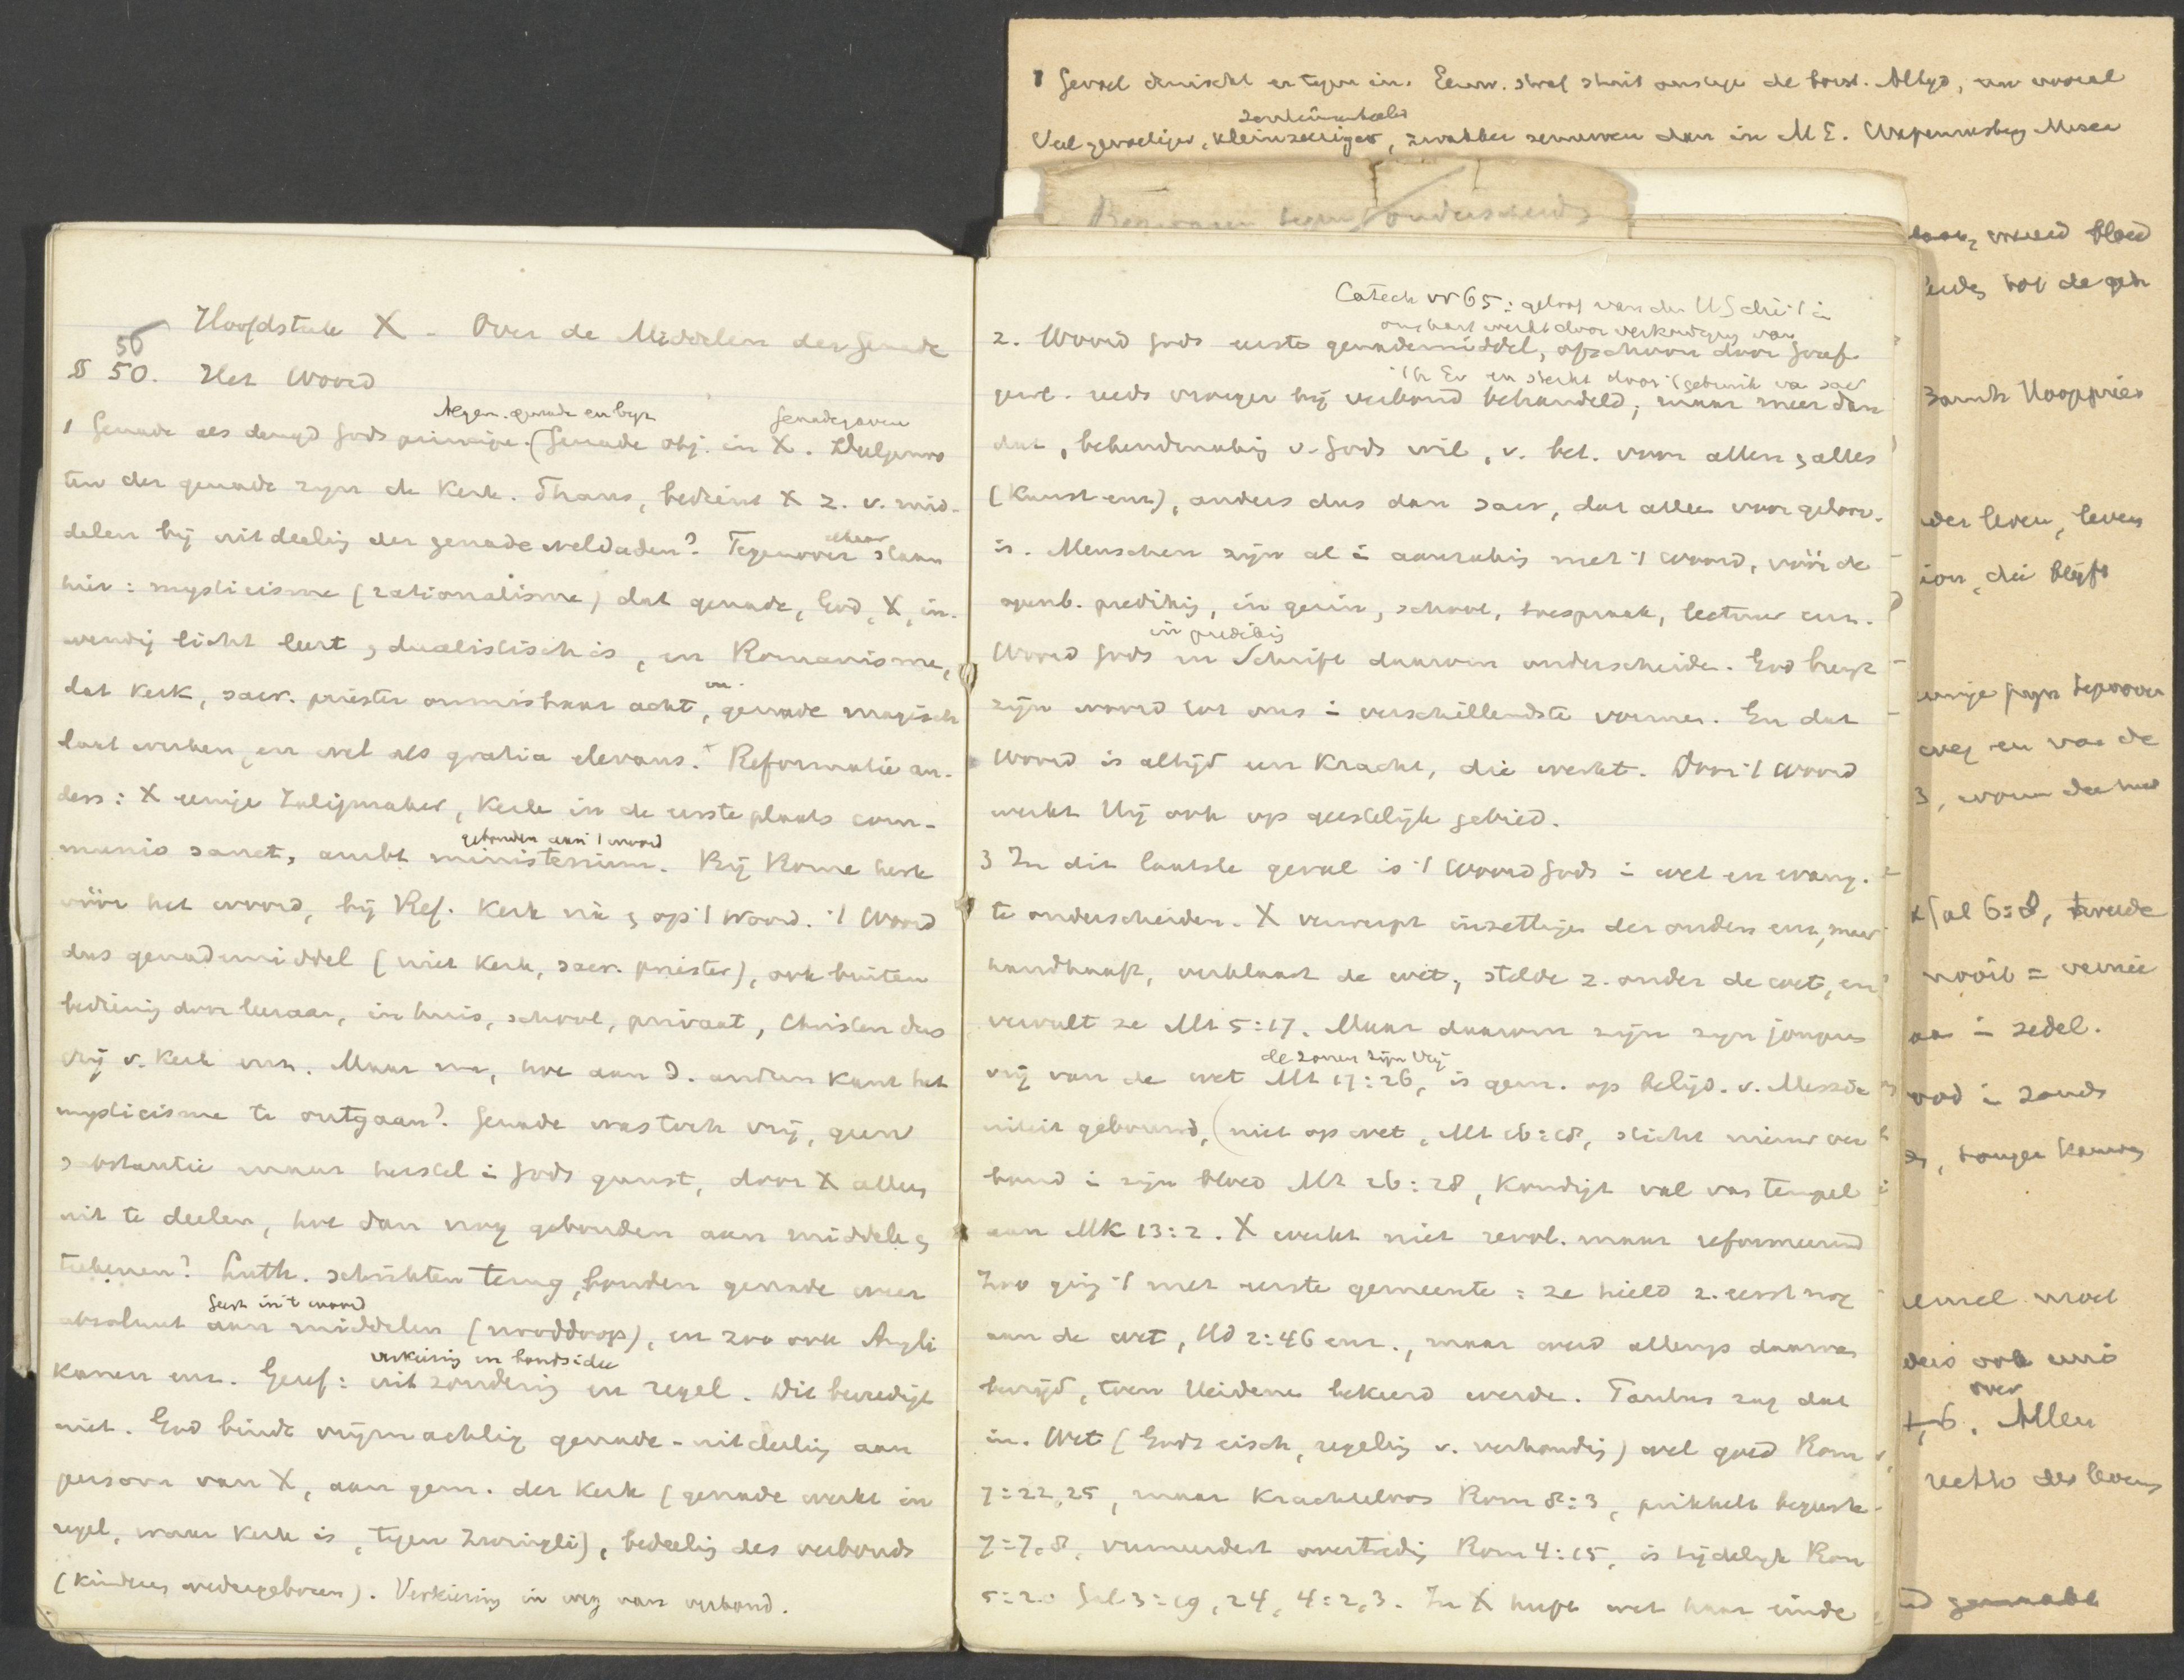 1 Gevoel druischt er tegen in. Eeuw. straf stuit ons tegen de borst. Altyd, nu vooral
zenuwen dan in M E.
Bezwaren tegen onderscheid
Hoofdstuk X - Over de Middelen der Genade
56
§ 50. Het Woord
Algem. genade en byz Genadegaven
1 Genade als deugd Gods principe. (Genade obj. in X. Deelgenoo
ten der genade zyn de Kerk. Thans, bedient X z. v. mid-
delen bij uitdeelig der genadeweldaden? Tegenover elkaar staan
hier: mysticisme (rationalisme) dat genade, God, X, in-
wendig licht leert, dualistisch is, en Romanisme,
dat Kerk, sacr. priester onmisbaar acht, en genade magisch
laat werken, en wel als gratia elevans. Reformatie an-
ders: X eenige Zaligmaker, Kerk in de eerste plaats com-
gebonden aan 't woord
munio sanct, ambt ministerium. Bij Rome kerk
vóór het woord, bij Ref. Kerk uit & op 't Woord. 't Woord
dus genademiddel (niet Kerk, sacr. priester), ook buiten
bediening door leeraar, in huis, school, privaat, Christen dus
vrij v. Kerk enz. Maar nu, hoe aan d. anderen Kant het
mysticisme te ontgaan? Genade was toch vrij, geen
substantie maar herstel i Gods gunst, door X alleen
uit te deelen, hoe dan nog gebonden aan middelen &
teekenen? Luth. schrikten terug, bonden genade weer
Geest in 't woord
absoluut aan middelen (nooddoop), en zoo ook Angli
verkiezing en bondsidee
kanen enz. Geref: uitzondering en regel. Dit bevredigt
niet. God bindt vrijmachtig genade-uitdeelig aan
persoon van X, aan gem. der Kerk (genade werkt in
regel, waar Kerk is, tegen Zwingli), bedeeling des verbonds
(kinderen wedergeboren). Verkiezing in weg van verbond.
Catech vr 65: geloof van den H Geest die 't in
ons hart werkt door verkondiging van
2. Woord Gods eerste genademiddel, ofschoon door Geref
't H. Ev en sterkt door 't gebruik van sacr
gewl. reeds vroeger bij verbond behandeld; maar meer dan
dat, bekendmaking v. Gods wil, v. bet. voor allen & alles
(Kunst enz), anders dus dan sacr, dat alleen voor geloov.
is. Menschen zijn al i aanraking met 't Woord, vóór de
openb. prediking, in gezin, school, toespraak, lectuur enz.
in prediking
Woord Gods en Schrift daarom onderscheiden. God brengt
zijn woord tot ons i verschillendste vormen. En dat
Woord is altijd een Kracht, die werkt. Door 't Woord
werkt Hij ook op geestelijk gebied.
3 In dit laatste geval is 't Woord Gods i wet en evang.
te onderscheiden. X verwerpt inzettingen der ouden enz, maar
handhaaft, verklaart de wet, stelde z. onder de wet, en
vervult ze Mt 5:17. Maar daarom zijn zyn jongeren
de zonen zijn vrij
vrij van de wet Mt 17:26, is gem. op belijd. v. Messia-
niteit gebouwd, (niet op wet, Mt 16:18, sticht nieuw ver
bond i zijn bloed Mt 26:28, Kondigt val van tempel
aan Mk 13:2. X werkt niet revol. maar reformeerend
Zoo ging 't met eerste gemeente: ze hield z. eerst nog
aan de wet, Hd 2:46 enz., maar werd allengs daarvan
bevrijd, toen Heidenen bekeerd werden. Paulus zag dat
in. Wet (Gods eisch, regeling v. verhouding) wel goed Rom
7:22,25, maar Krachteloos Rom 8:3, prikkelt begeerte
7:7,8, vermeerdert overtreding Rom 4:15, is tijdelyk Rom
5:20 Gal 3:19, 24, 4:2,3. In X heeft wet haar einde
bloed
tot de geh
leven, leven
die blyft
eenige
weg en van de
Gal 6:8, tweede
nooit =
i zedel.
i zonde
tempel moet
ook eens
over
Allen
des levens